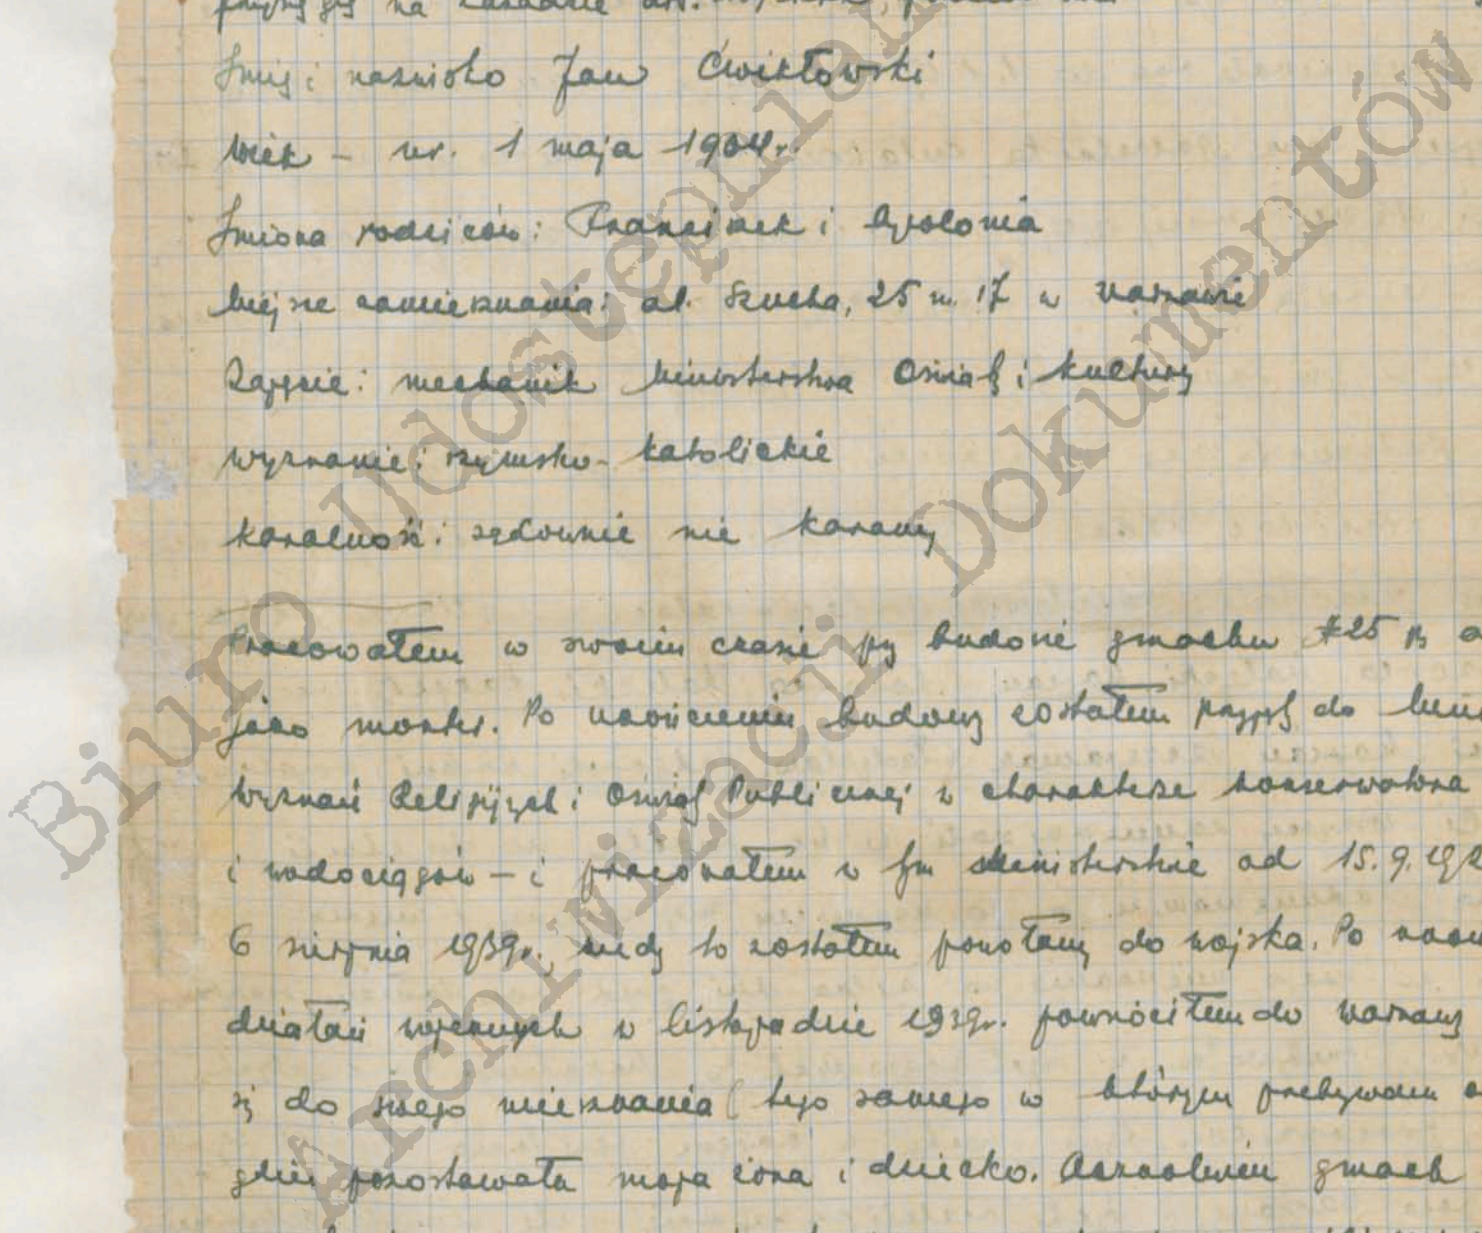 Imię i nazwisko Jan Ćwikłowski
wiek – ur. 1 maja 1904r.
Imiona rodziców: Franciszek i Apolonia
Miejsce zamieszkania: al. Szucha, 25 m. 17 w Warszawie
Zajęcie: mechanik Ministerstwa Oświaty i Kultury
wyznanie: rzymsko-katolickie
karalność: sądownie nie karany
Pracowałem w swoim czasie przy budowie gmachu #25 p
jako monter. Po ukończeniu budowy zostałem przyjęty do
Wyznań Religijnych i Oświaty Publicznej w charakterze konserwatora
i wodociągów – i pracowałem w tym Ministerstwie od 15.9.
6 sierpnia 1939r., kiedy to zostałem powołany do wojska. Po
działań wojennych w listopadzie 1939r. powróciłem do Warszawy
się do swego mieszkania (tego samego w którym przebywam
gdzie pozostawała moja żona i dziecko. gmach
Biuro Udostępniania
i Archiwizacji Dokumentów